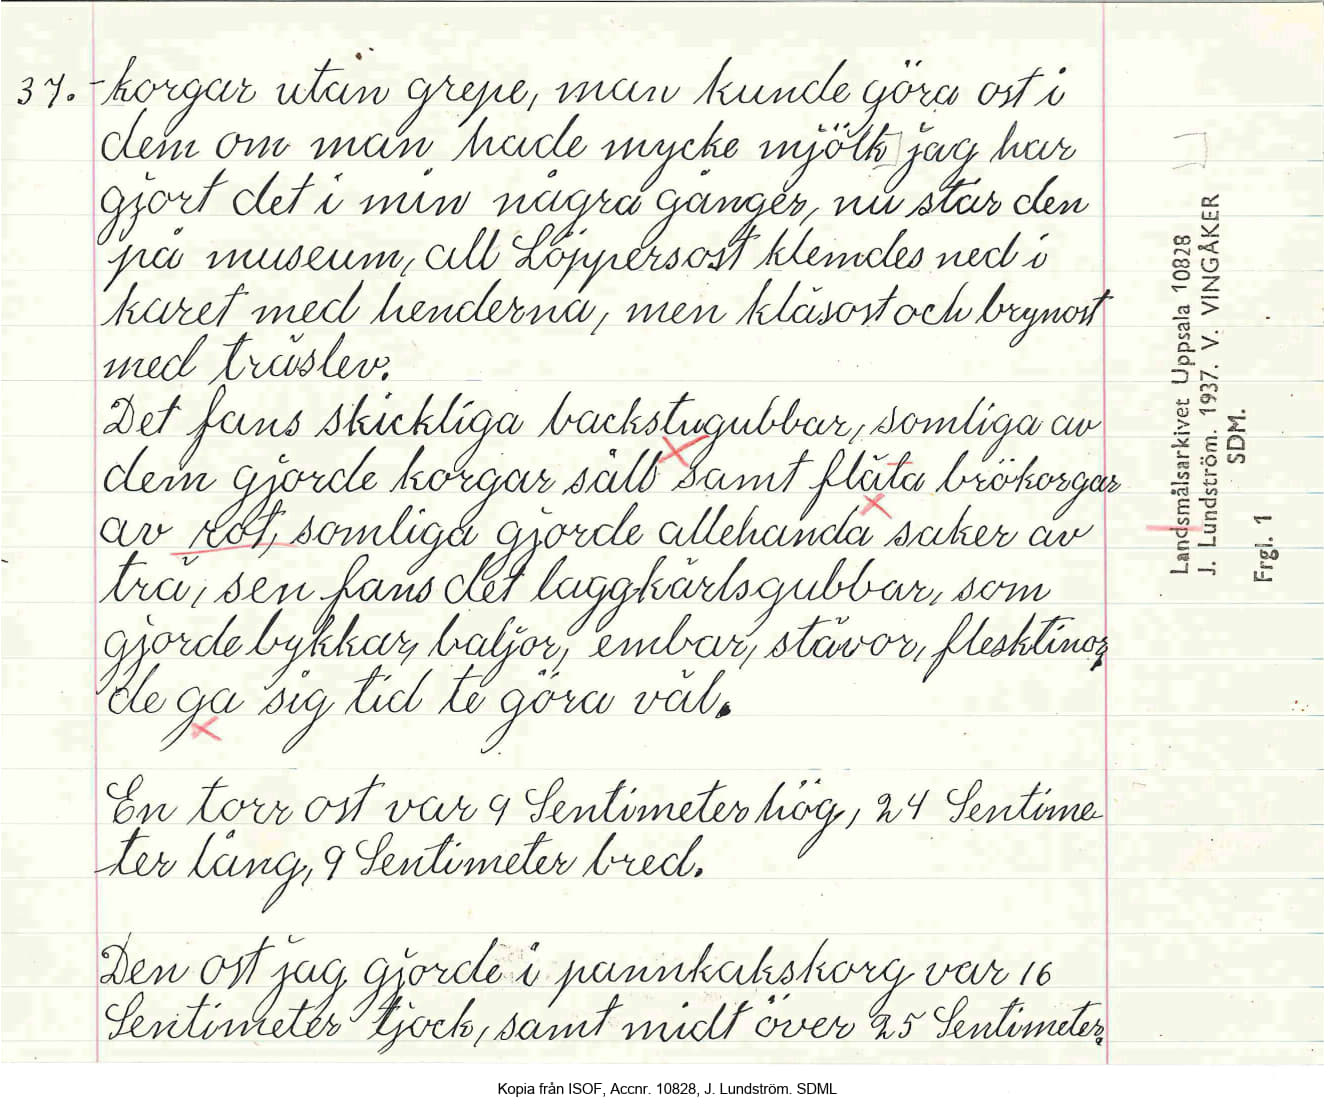 37. -korgar utan grepe, man kunde göra ost i
dem om man hade mycke mjölk jag har
gjort det i min några gånger, nu står den
på museum, all Löppersost klemdes ned i
karet med henderna, men kläsost och brynost
med träslev.
Det fans skickliga backstugubbar, somliga av
dem gjorde korgar såll samt fläta brökorgar
av rot, somliga gjorde allehanda saker av
trä, sen fans det laggkärlsgubbar, som
gjorde bykkar, baljor, embar, stävor, flesktinor,
de ga sig tid te göra väl.
En torr ost var 9 Sentimeter hög, 24 Sentime
ter lång, 9 Sentimeter bred.
Den ost jag gjorde i pannkakskorg var 16
Sentimeter tjock, samt midt över 25 Sentimeter.
Landsmålsarkivet Uppsala 10828
J. Lundström. 1937. V. VINGÅKER
SDM.
Frgl. 1
Kopia från ISOF, Accnr. 10828, J. Lundström. SDML